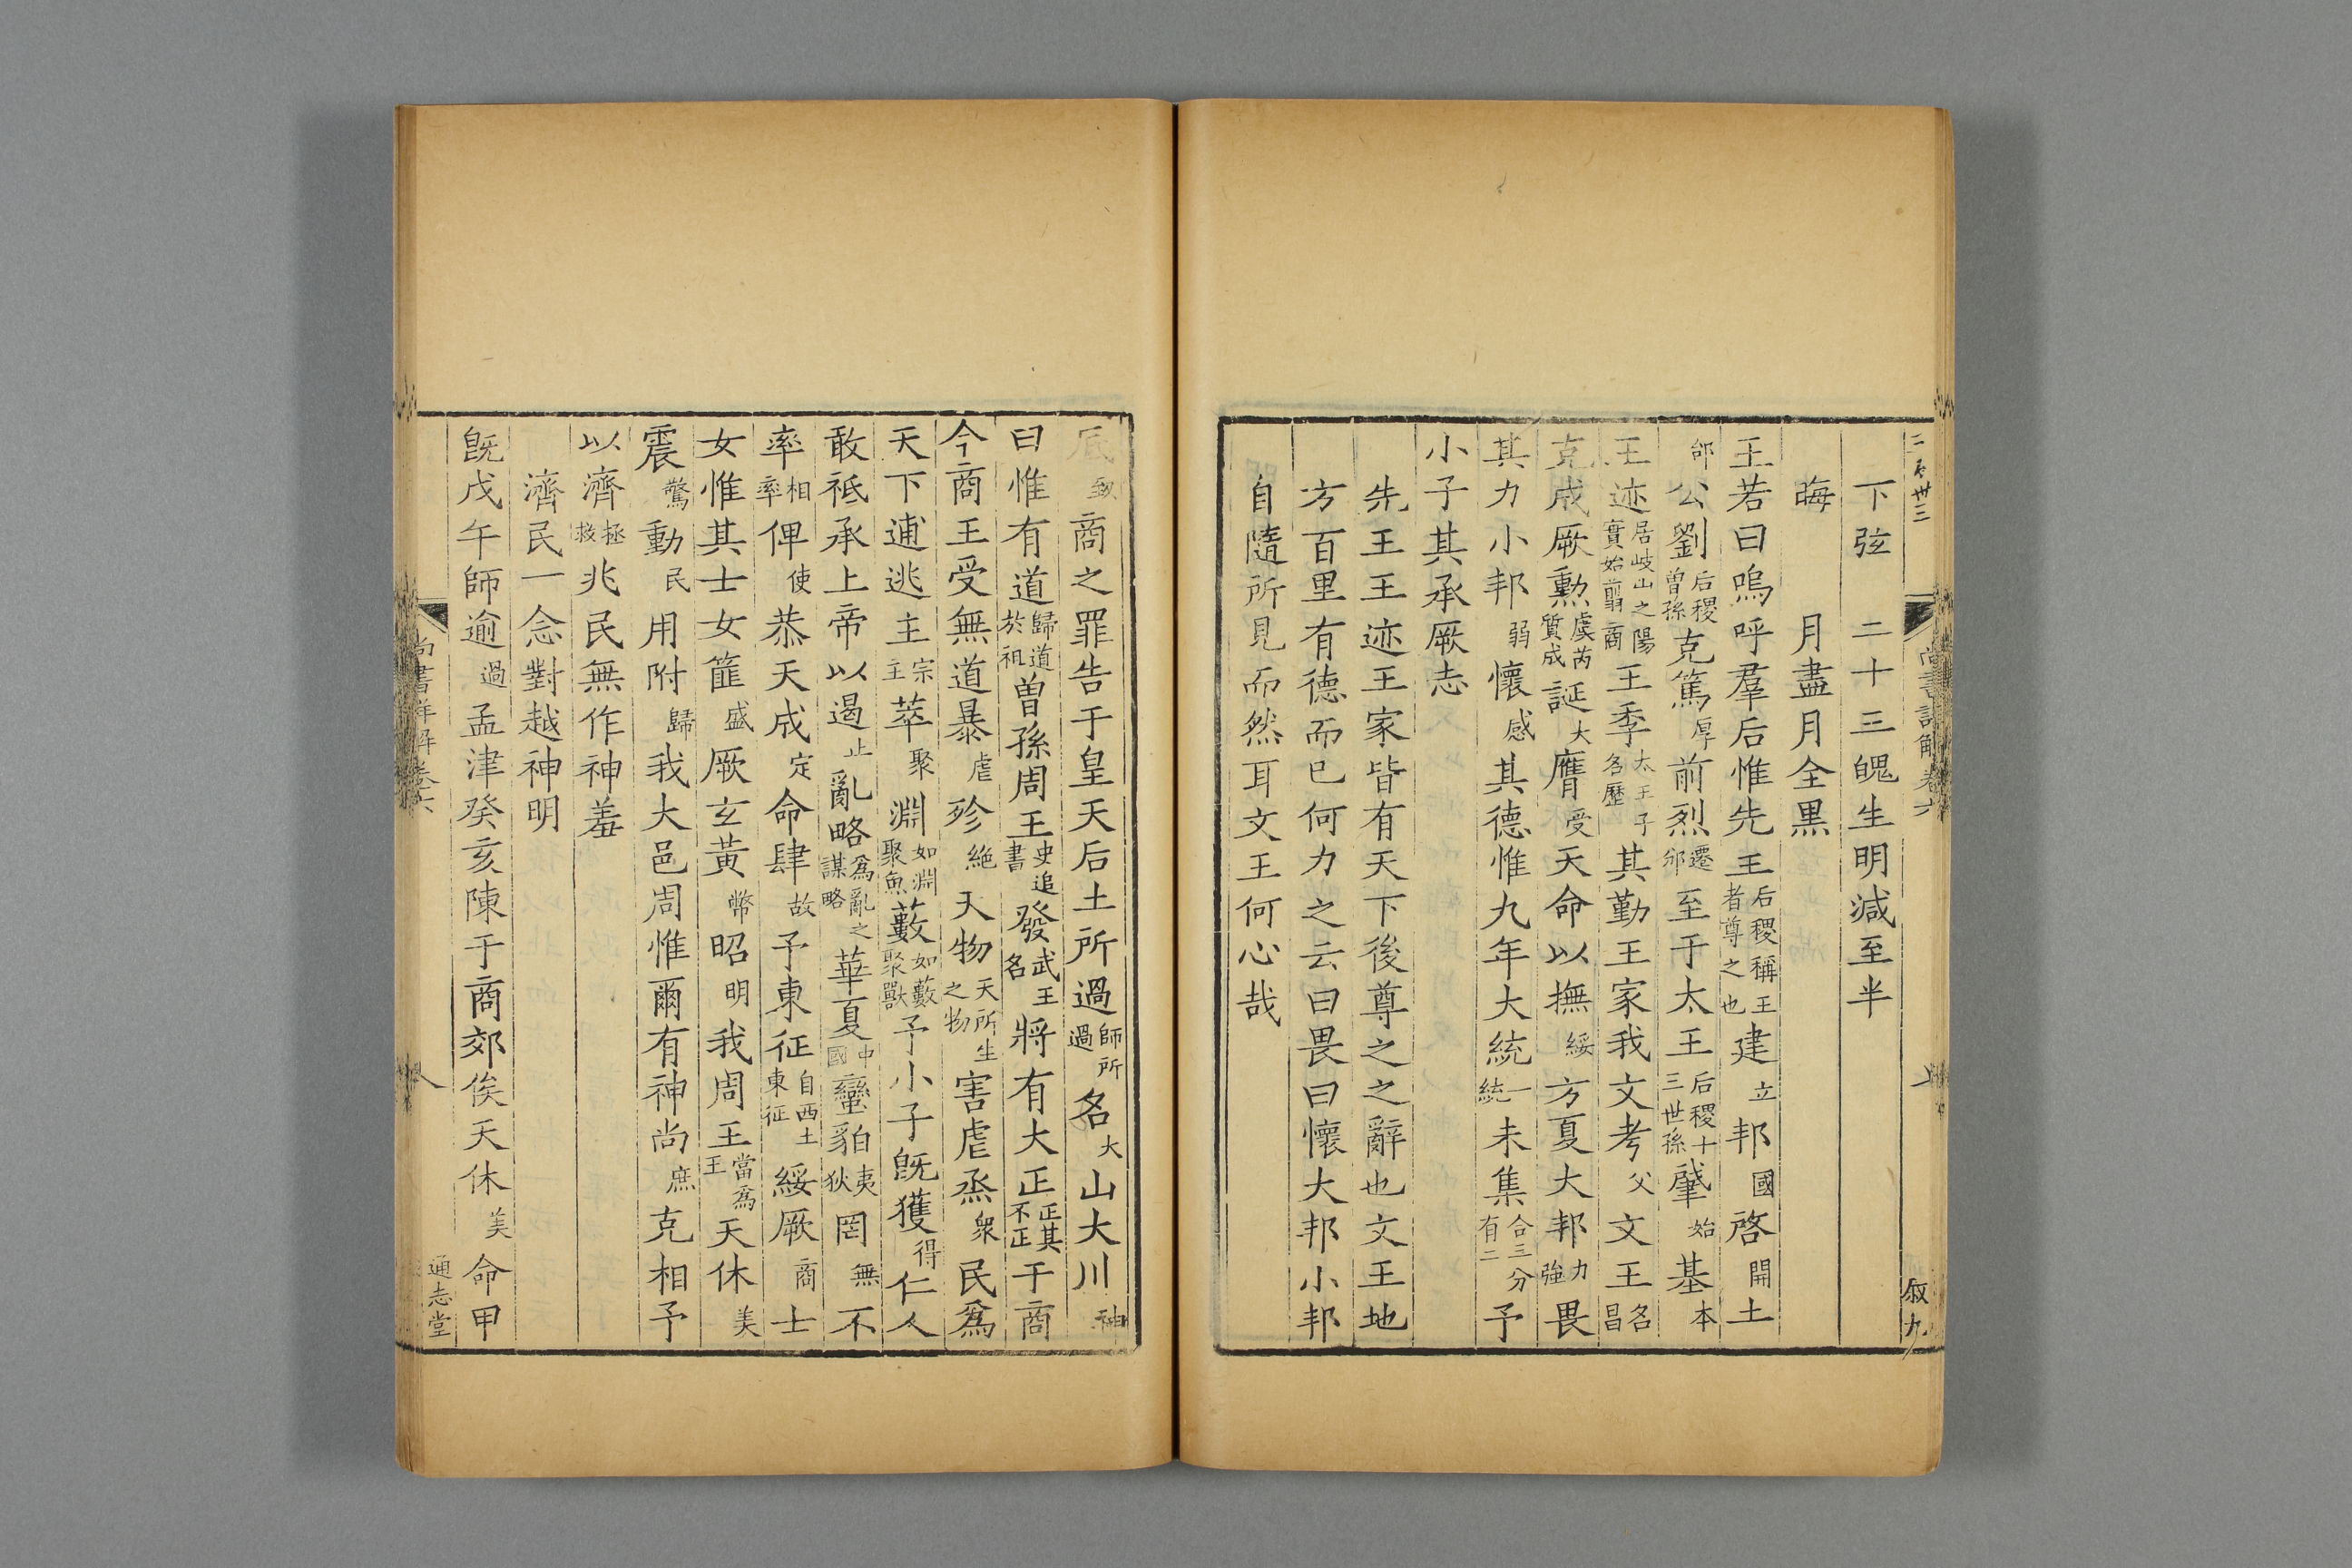 下弦 二十三魄生明減至半
晦 月盡月全黒
王若曰嗚呼羣后惟先王后稷稱王者尊之也建立邦國啓開土
郃公劉后稷曽孫克篤厚前烈遷邠至于太王后稷十三世孫肇始基本
王迹居岐山之陽實始翦商王季太王子名歷其勤王家我文考父文王名昌
克成厥勲虞芮質成誕大膺受天命以撫綏方夏大邦力強畏
其力小邦弱懷感其德惟九年大統一統未集合三分有二予
小子其承厥志
先王王迹王家皆有天下後尊之之辭也文王地
方百里有德而已何力之云曰畏曰懷大邦小邦
自隨所見而然耳文王何心哉
尚書詳解卷六
叙九
厎致商之罪告于皇天后土所過師所過名大山大川神
曰惟有道歸道於祖曽孫周王史追書發武王名將有大正正其不正于商
今商王受無道暴虐殄絶天物天所生之物害虐烝衆民爲
天下逋逃主宗主萃聚淵如淵聚魚藪如藪聚獸予小子旣獲得仁人
敢祗承上帝以遏止亂略爲亂之謀略華夏中國蠻貊夷狄罔無不
率相率俾使恭天成定命肆故予東征自西土東征綏厥商士
女惟其士女篚盛厥玄黃幣昭明我周王當爲王天休美
震驚動民用附歸我大邑周惟爾有神尚庶克相予
以濟拯救兆民無作神羞
濟民一念對越神明
旣戊午師逾過孟津癸亥陳于商郊俟天休美命甲
尚書詳解卷六
通志堂